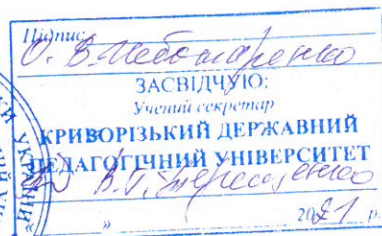 Підпис
О. В.
ЗАСВІДЧУЮ:
Учений секретар
КРИВОРІЗЬКИЙ ДЕРЖАВНИЙ
ПЕДАГОГІЧНИЙ УНІВЕРСИТЕТ
В.
» 2021 р.